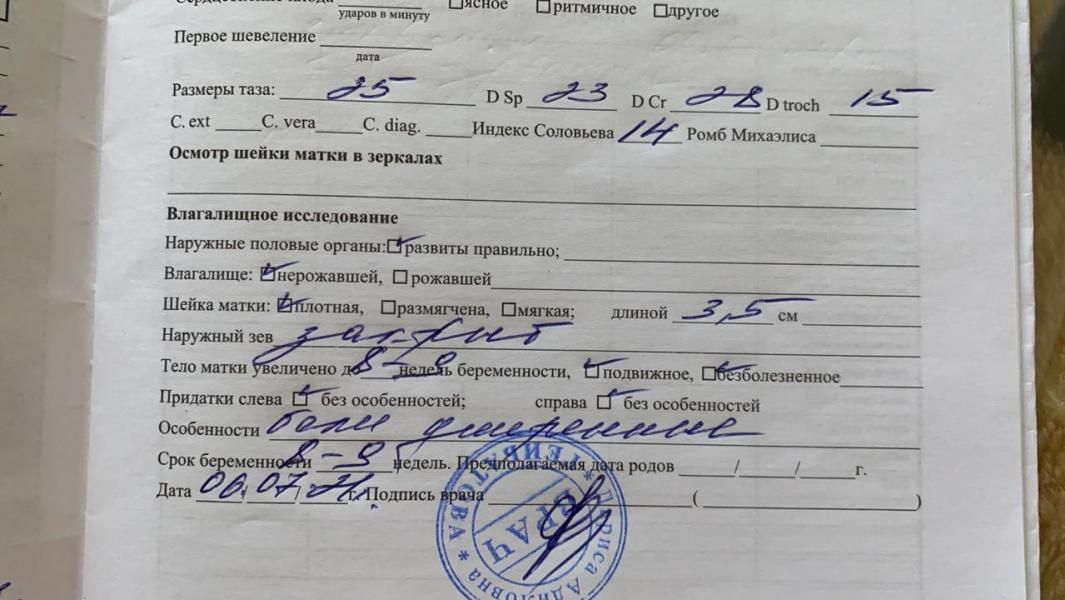 ударов в минуту □ясное □ритмичное □другое
Первое шевеление
дата
Размеры таза: 25 D Sp 23 D Cr 28 D troch 15
C. ext C. vera C. diag. Индекс Соловьева 14 Ромб Михаэлиса
Осмотр шейки матки в зеркалах
Влагалищное исследование
Наружные половые органы: ☑развиты правильно;
Влагалище: ☑нерожавшей, □рожавшей
Шейка матки: ☑плотная, □размягчена, □мягкая; длиной 3,5 см
Наружный зев закрыт
Тело матки увеличено до 8-9 недель беременности, ☑подвижное, ☑безболезненное
Придатки слева ☑ без особенностей; справа ☑ без особенностей
Особенности бели умеренные
Срок беременности 8-9 недель. Предполагаемая дата родов / / г.
Дата 06/07/ г. Подпись врача ( )
ВРАЧ